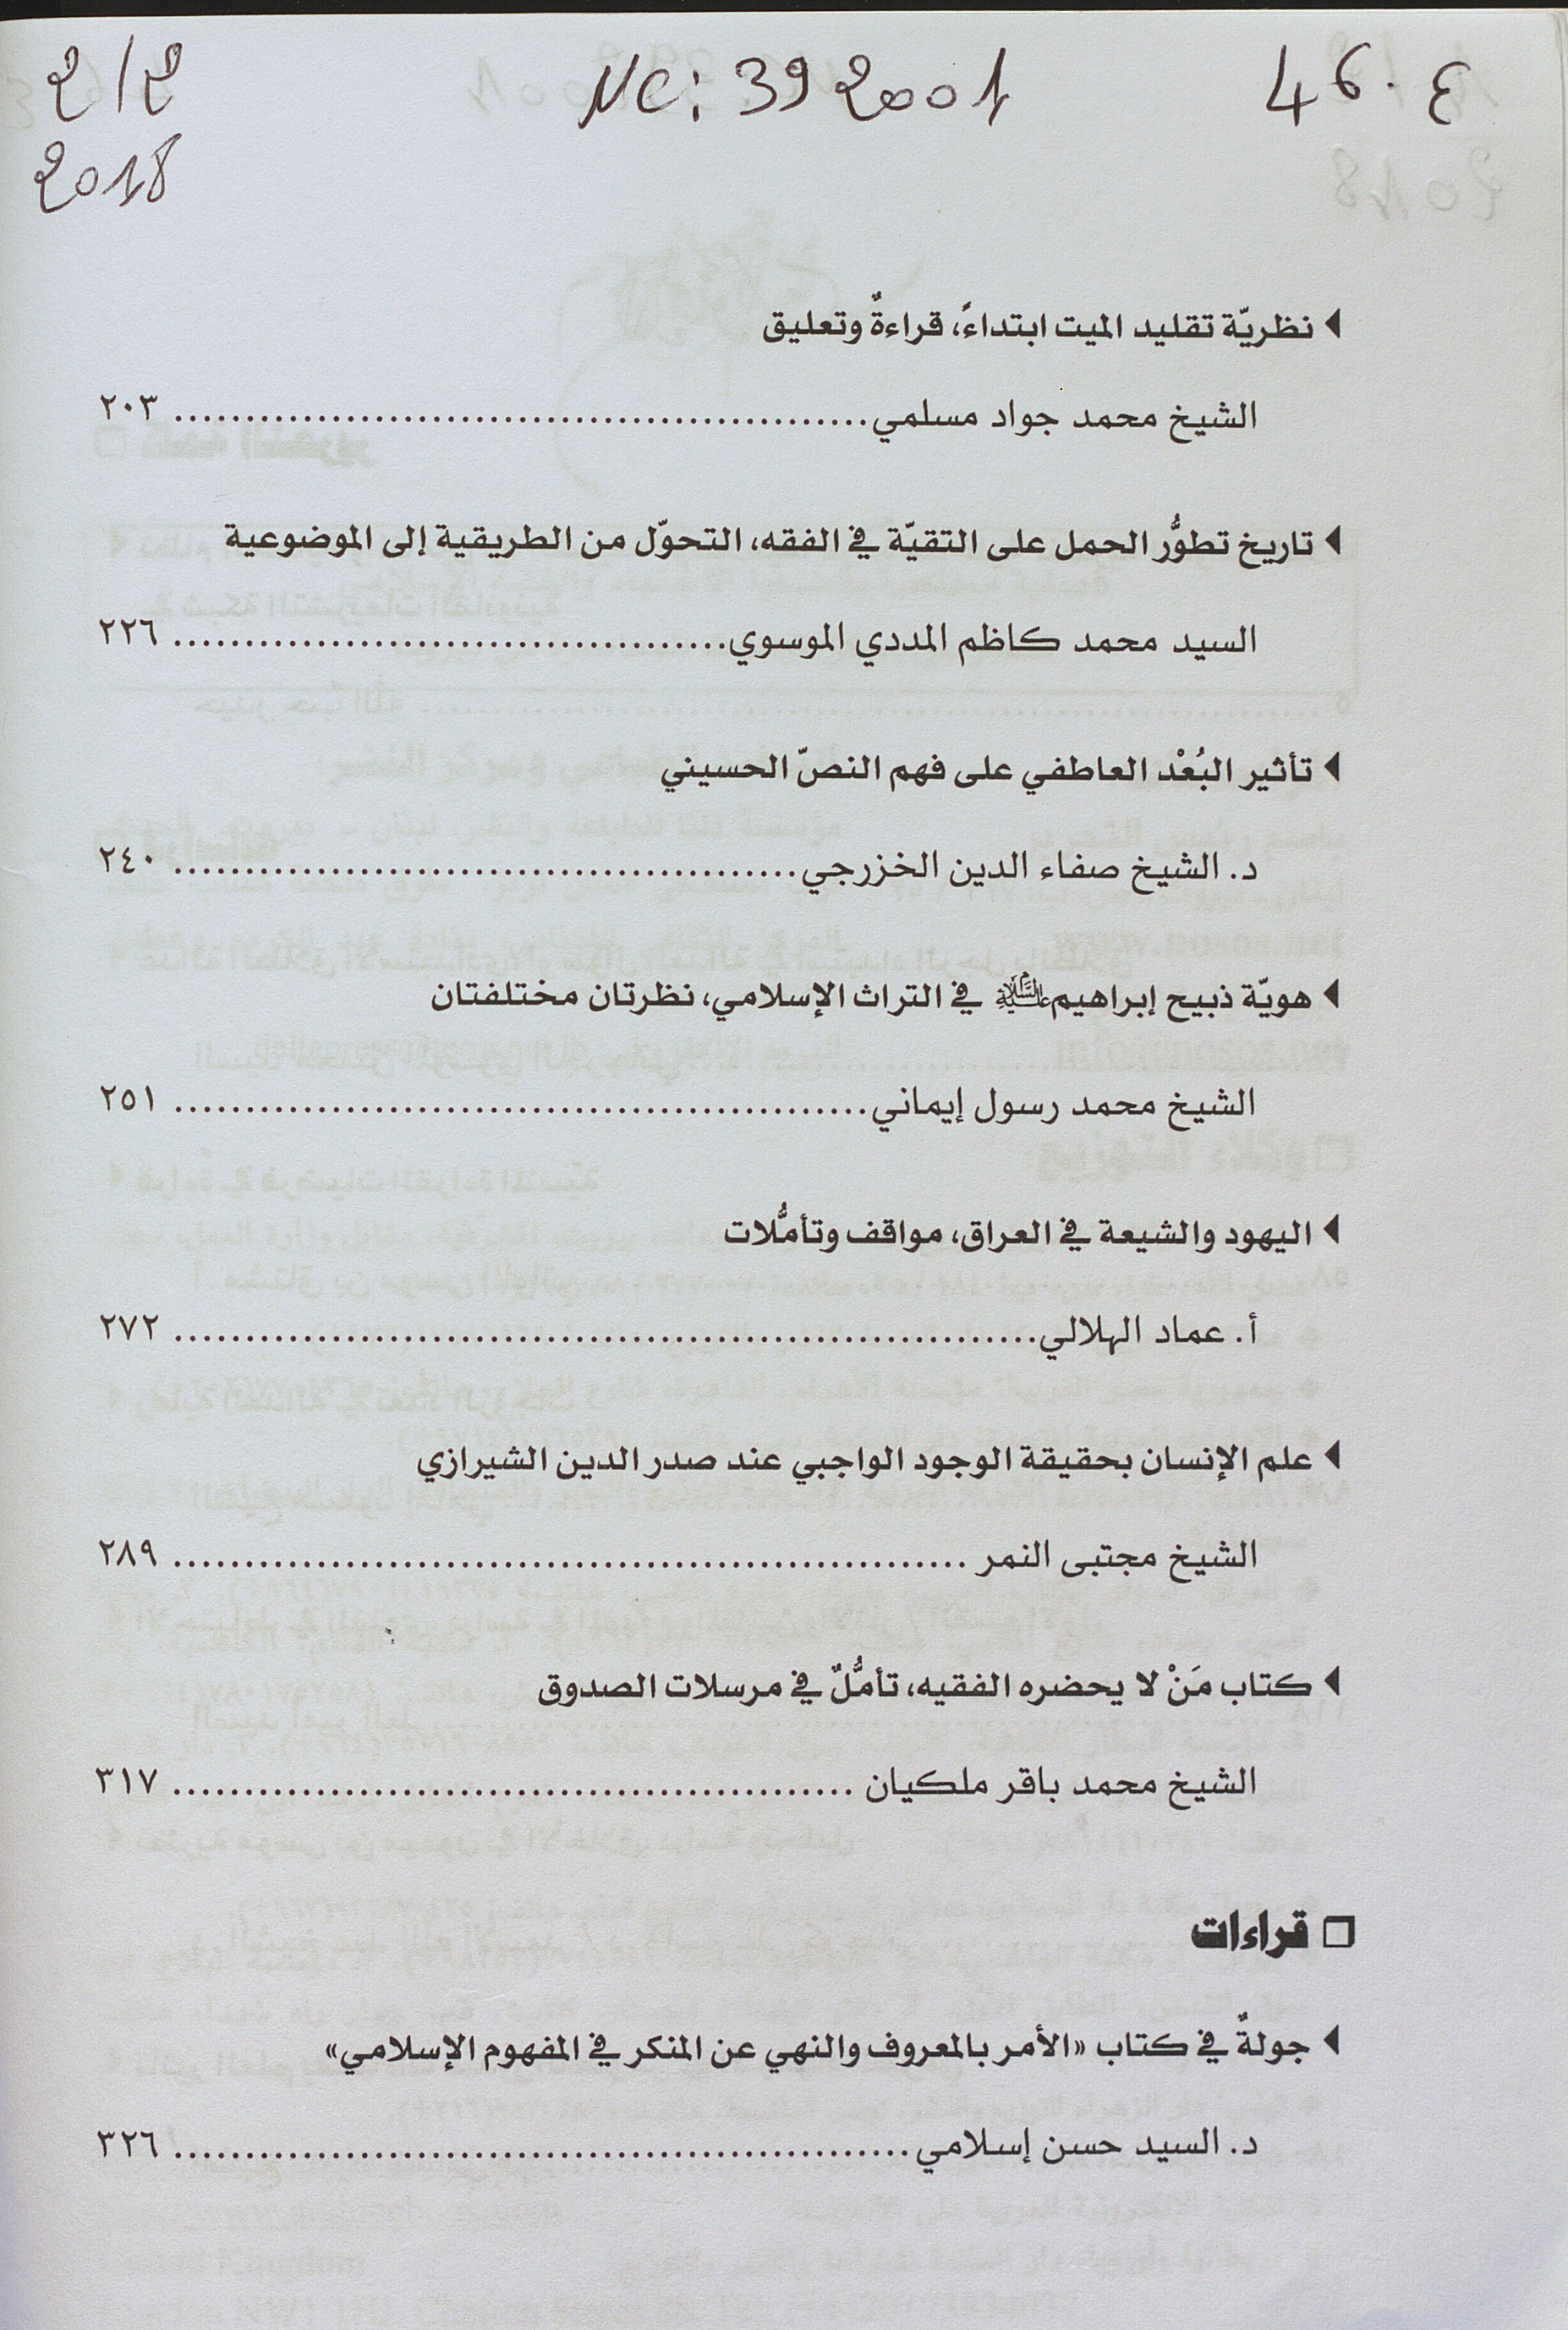 2/2 NC: 392001 46.ع
2018
نظريّة تقليد الميت ابتداءً، قراءةٌ وتعليق
الشيخ محمد جواد مسلمي................................................ ٢٠٣
تاريخ تطوُّر الحمل على التقيّة في الفقه، التحوّل من الطريقية إلى الموضوعية
السيد محمد كاظم المددي الموسوي...................................... ٢٢٦
تأثير البُعْد العاطفي على فهم النصّ الحسيني
د. الشيخ صفاء الدين الخزرجي........................................... ٢٤٠
هويّة ذبيح إبراهيم عليه السلام في التراث الإسلامي، نظرتان مختلفتان
الشيخ محمد رسول إيماني................................................ ٢٥١
اليهود والشيعة في العراق، مواقف وتأمُّلات
أ. عماد الهلالي............................................................ ٢٧٢
علم الإنسان بحقيقة الوجود الواجبي عند صدر الدين الشيرازي
الشيخ مجتبى النمر ....................................................... ٢٨٩
كتاب مَنْ لا يحضره الفقيه، تأمُّلٌ في مرسلات الصدوق
الشيخ محمد باقر ملكيان ............................................... ٣١٧
قراءات
جولةٌ في كتاب «الأمر بالمعروف والنهي عن المنكر في المفهوم الإسلامي»
د. السيد حسن إسلامي................................................... ٣٢٦